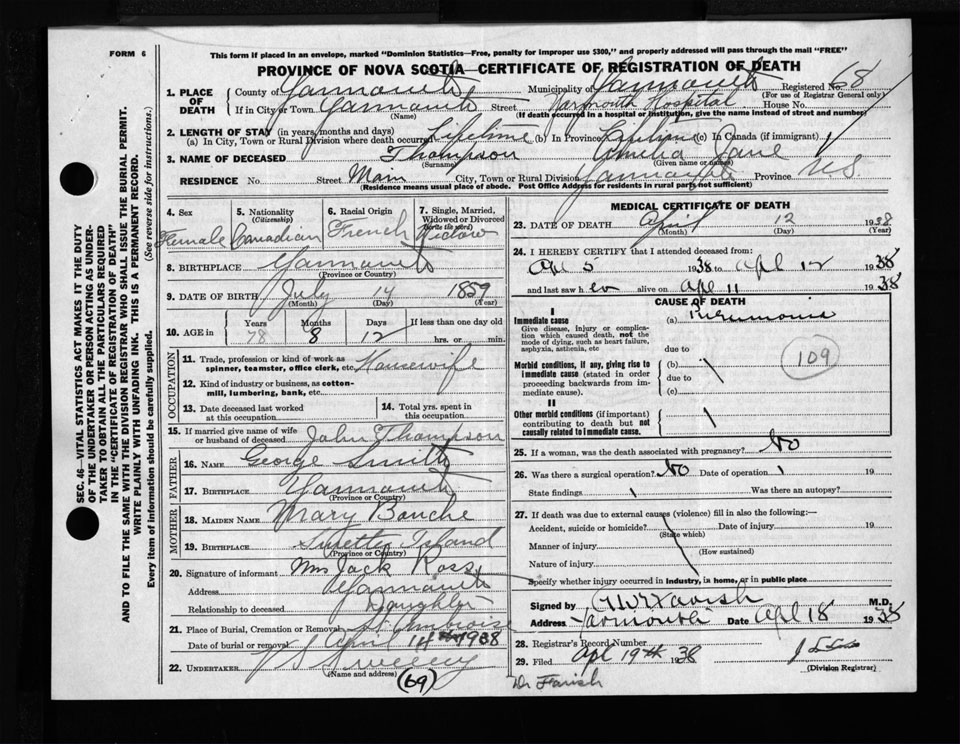 FORM 6
This form if placed in an envelope, marked "Dominion Statistics—Free, penalty for improper use $300," and properly addressed will pass through the mail "FREE"
PROVINCE OF NOVA SCOTIA—CERTIFICATE OF REGISTRATION OF DEATH
SEC. 46—VITAL STATISTICS ACT MAKES IT THE DUTY
OF THE UNDERTAKER OR PERSON ACTING AS UNDER-
TAKER TO OBTAIN ALL THE PARTICULARS REQUIRED
IN THE "CERTIFICATE OF REGISTRATION OF DEATH"
AND TO FILE THE SAME WITH THE DIVISION REGISTRAR WHO SHALL ISSUE THE BURIAL PERMIT.
WRITE PLAINLY WITH UNFADING INK. THIS IS A PERMANENT RECORD.
Every item of information should be carefully supplied. (See reverse side for instructions.)
1. PLACE OF DEATH County of Yarmouth Municipality of Yarmouth Registered No. 68
(For use of Registrar General only)
If in City or Town Yarmouth Street Yarmouth Hospital House No.
(Name) (If death occurred in a hospital or institution, give the name instead of street and number)
2. LENGTH OF STAY (in years, months and days)
(a) In City, Town or Rural Division where death occurred Lifetime (b) In Province Lifetime (c) In Canada (if immigrant)
3. NAME OF DECEASED Thompson Amelia Jane
(Surname) (Given name or names)
RESIDENCE No. Street Main City, Town or Rural Division Yarmouth Province N.S.
(Residence means usual place of abode. Post Office Address for residents in rural parts not sufficient)
4. Sex Female
5. Nationality (Citizenship) Canadian
6. Racial Origin French
7. Single, Married, Widowed or Divorced (Write the word) Widow
8. BIRTHPLACE Yarmouth
(Province or Country)
9. DATE OF BIRTH July 14 1859
(Month) (Day) (Year)
10. AGE in Years 78 Months 8 Days 12 If less than one day old hrs. or min.
OCCUPATION
11. Trade, profession or kind of work as spinner, teamster, office clerk, etc. Housewife
12. Kind of industry or business, as cotton-mill, lumbering, bank, etc.
13. Date deceased last worked at this occupation
14. Total yrs. spent in this occupation
15. If married give name of wife or husband of deceased John Thompson
FATHER
16. NAME George Smith
17. BIRTHPLACE Yarmouth
(Province or Country)
MOTHER
18. MAIDEN NAME Mary Bouche
19. BIRTHPLACE Island
(Province or Country)
20. Signature of informant Mrs Jack Ross
Address Yarmouth
Relationship to deceased Daughter
21. Place of Burial, Cremation or Removal St Ambroise
Date of burial or removal April 14 1938
22. UNDERTAKER V S Sweeny
(Name and address)
69
MEDICAL CERTIFICATE OF DEATH
23. DATE OF DEATH April 12 1938
(Month) (Day) (Year)
24. I HEREBY CERTIFY that I attended deceased from:
Apl 5 1938 to Apl 12 1938
and last saw h er alive on Apl 11 1938
CAUSE OF DEATH
I
Immediate cause (a) Pneumonia
Give disease, injury or complication which caused death, not the mode of dying, such as heart failure, asphyxia, asthenia, etc
due to
Morbid conditions, if any, giving rise to immediate cause (stated in order proceeding backwards from immediate cause).
(b)
due to
(c)
109
II
Other morbid conditions (if important) contributing to death but not causally related to immediate cause.
25. If a woman, was the death associated with pregnancy? No
26. Was there a surgical operation? No Date of operation 19
State findings Was there an autopsy?
27. If death was due to external causes (violence) fill in also the following:—
Accident, suicide or homicide? Date of injury 19
(State which)
Manner of injury
(How sustained)
Nature of injury
Specify whether injury occurred in Industry, in home, or in public place
Signed by M.D.
Address Yarmouth Date Apl 18 1938
28. Registrar's Record Number
29. Filed Apl 19th 1938
(Division Registrar)
Dr Farish